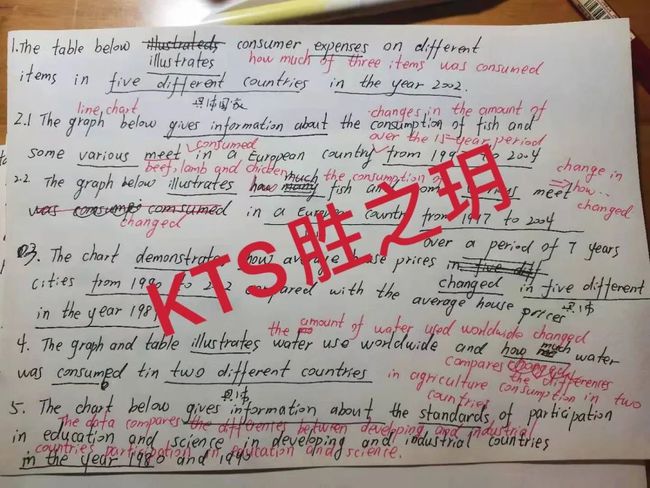 1. The table below illustrateds consumer expenses on different
illustrates how much of three items was consumed
items in five different countries in the year 2002.
具体国家
line chart changes in the amount of
2.1 The graph below gives information about the consumption of fish and
consumed over the 15-year period
some various meet in a European country from 19 to 2004
beef, lamb and chicken the consumption of change in
2.2 The graph below illustrates how many much fish an meet how...
was consumed in a European country from 1977 to 2004
changed changed
over a period of 7 years
3. The chart demonstrate how average house prices in five diff
changed in five different
cities from 1990 to 2002 compared with the average house prices
具体
in the year 198
the amount of water used worldwide changed
4. The graph and table illustrates water use worldwide and how much water
compares changed the differences
was consumed in two different countries in agriculture consumption in two
具体 countries
5. The chart below gives information about the standards of participation
The data compares the differences between developing and industrial
in education and science in developing and industrial countries
countries participation in education and science.
in the year 1980 and 1990
KTS胜之玥